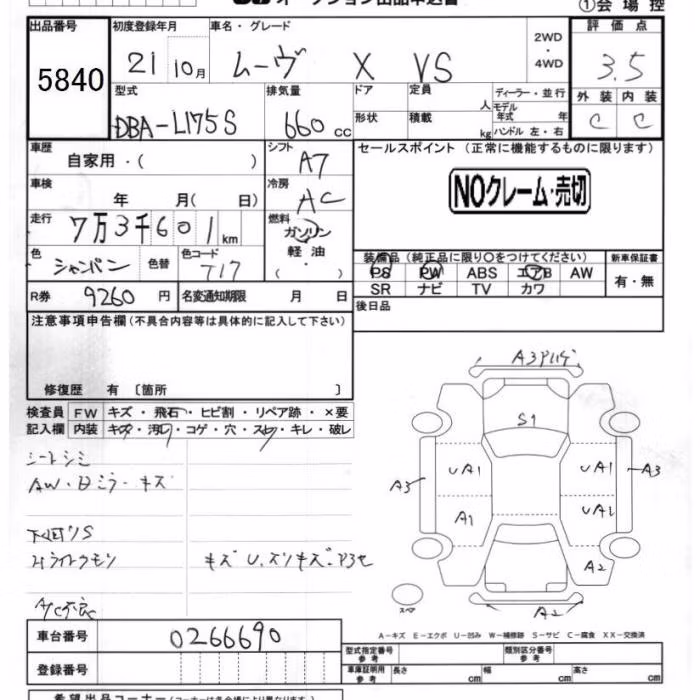 オークション出品申込書
①会場控
出品番号 5840
初度登録年月 21 10月
車名・グレード ムーヴ X VS
2WD ・ 4WD
評価点 3.5
型式 DBA-L175S
排気量 660 cc
ドア 定員 人
ディーラー・並行
モデル年式 年
形状 積載 kg
ハンドル 左・右
外装 内装
C C
車歴 自家用・( )
シフト A7
セールスポイント (正常に機能するものに限ります)
NOクレーム・売切
車検 年 月( 日)
冷房 AC
走行 7万3千601km
燃料 ガソリン 軽油・( )
色 シャンパン 色替 色コード T17
装備品(純正品に限り○をつけてください) 新車保証書
PS PW ABS エアB AW 有・無
SR ナビ TV カワ
R券 9260円 名変通知期限 月 日
後日品
注意事項申告欄(不具合内容等は具体的に記入して下さい)
修復歴 有 〔箇所 〕
検査員 FW キズ・飛石・ヒビ割・リペア跡・×要
記入欄 内装 キズ・汚れ・コゲ・穴・スレ・キレ・破レ
シートシミ
AW・Bミラーキズ
下廻りS
Hライトクモリ
キズ U.スリキズ
A/C不良
A3
S1
UA1
UA1
A3
A3
A1
UA1
A2
A2
スペア
A-キズ E-エクボ U-凹み W-補修跡 S-サビ C-腐食 XX-交換済
車台番号 0266690
型式指定番号 参考
類別区分番号 参考
登録番号
車庫証明用 参考 長さ cm 幅 cm 高さ cm
希望出品コーナー